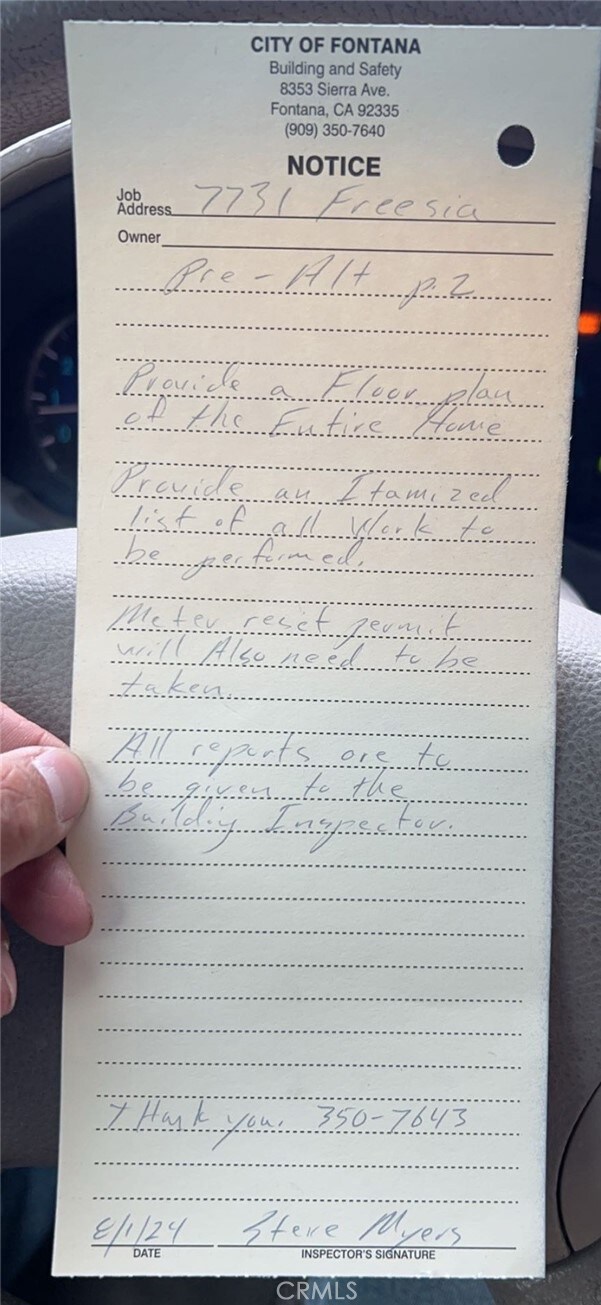 CITY OF FONTANA
Building and Safety
8353 Sierra Ave.
Fontana, CA 92335
(909) 350-7640
NOTICE
Job
Address 7731 Freesia
Owner
Pre - Alt p.2
Provide a Floor plan
of the Entire Home
Provide an Itamized
list of all Work to
be performed.
Meter reset permit
will Also need to be
taken.
All reports are to
be given to the
Building Inspector.
Thank you. 350-7643
8/1/24 Steve Myers
DATE INSPECTOR'S SIGNATURE
CRMLS